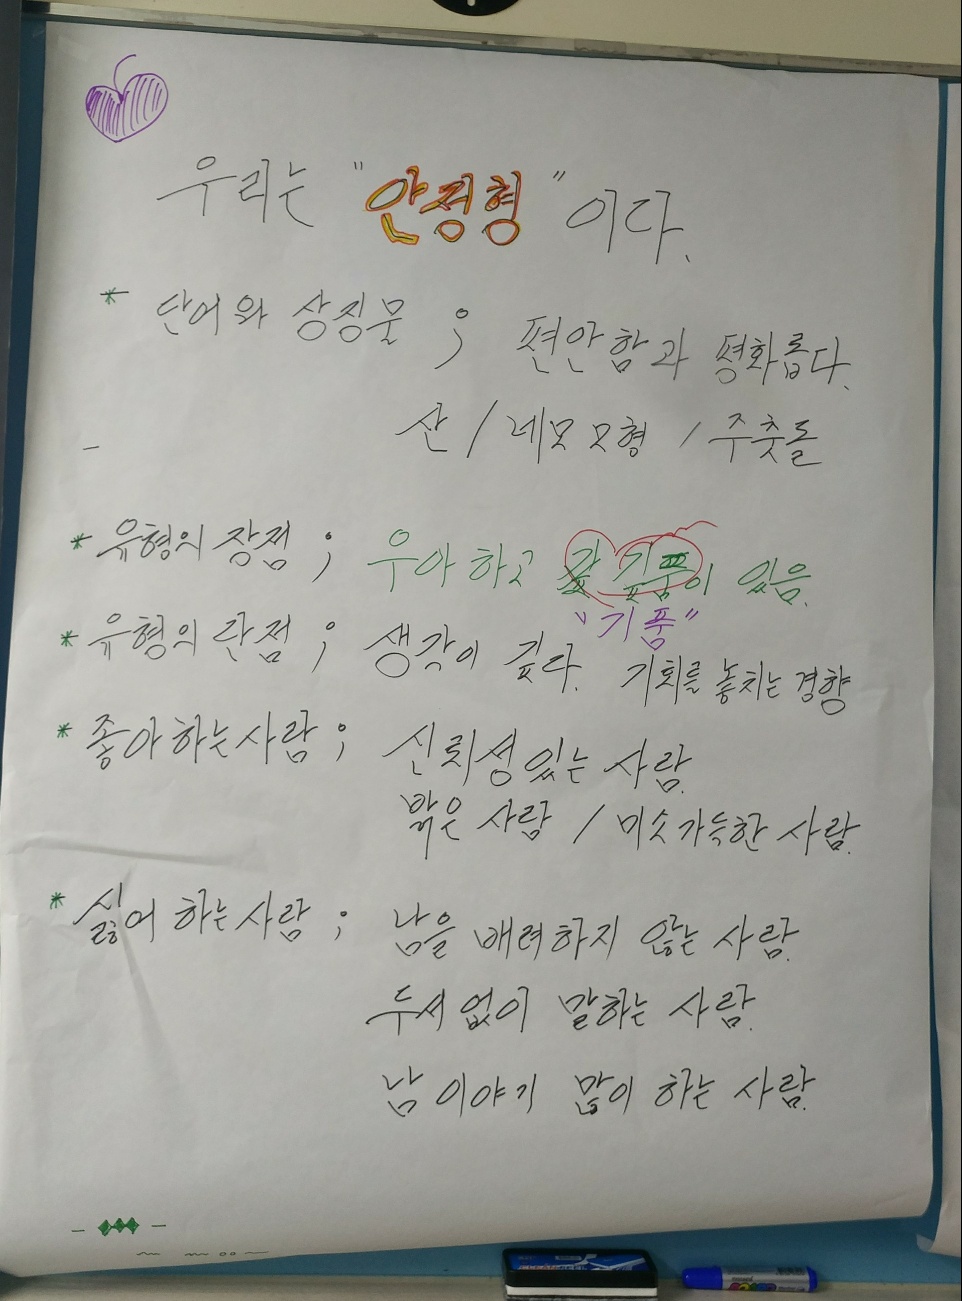 우리는 "안정형"이다.
* 단어와 상징물 ; 편안함과 평화롭다.
산 / 네모 모형 / 주춧돌
* 유형의 장점 ; 우아하고 깊이 있음.
"기품"
* 유형의 단점 ; 생각이 깊다. 기회를 놓치는 경향
* 좋아하는사람 ; 신뢰성있는 사람.
밝은 사람 / 미소가득한 사람.
* 싫어하는사람 ; 남을 배려하지 않는 사람.
두서없이 말하는 사람.
남 이야기 많이 하는 사람.